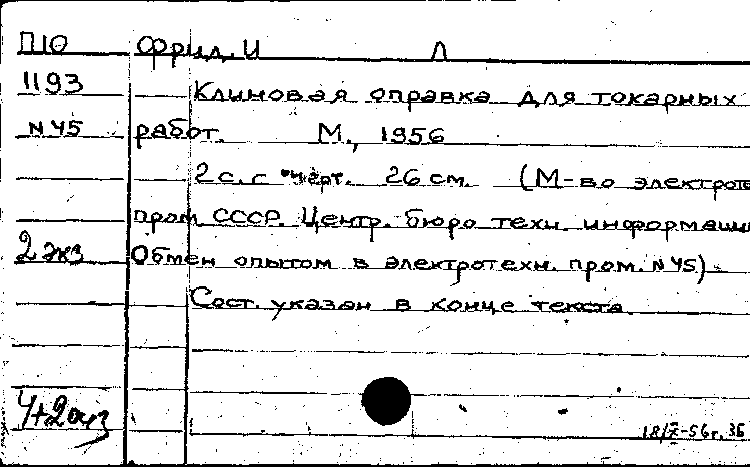 П10 Фрид. И Л
1193 Клиновая оправка для токарных
N45 работ. М., 1956
2 с. с черт. 26 см. (М-во электроте
пром СССР. Центр. бюро техн. информации
2 экз Обмен опытом в электротехн. пром. N45)
Сост. указан в конце текста.
4+2оиз
18/X-56г. 36